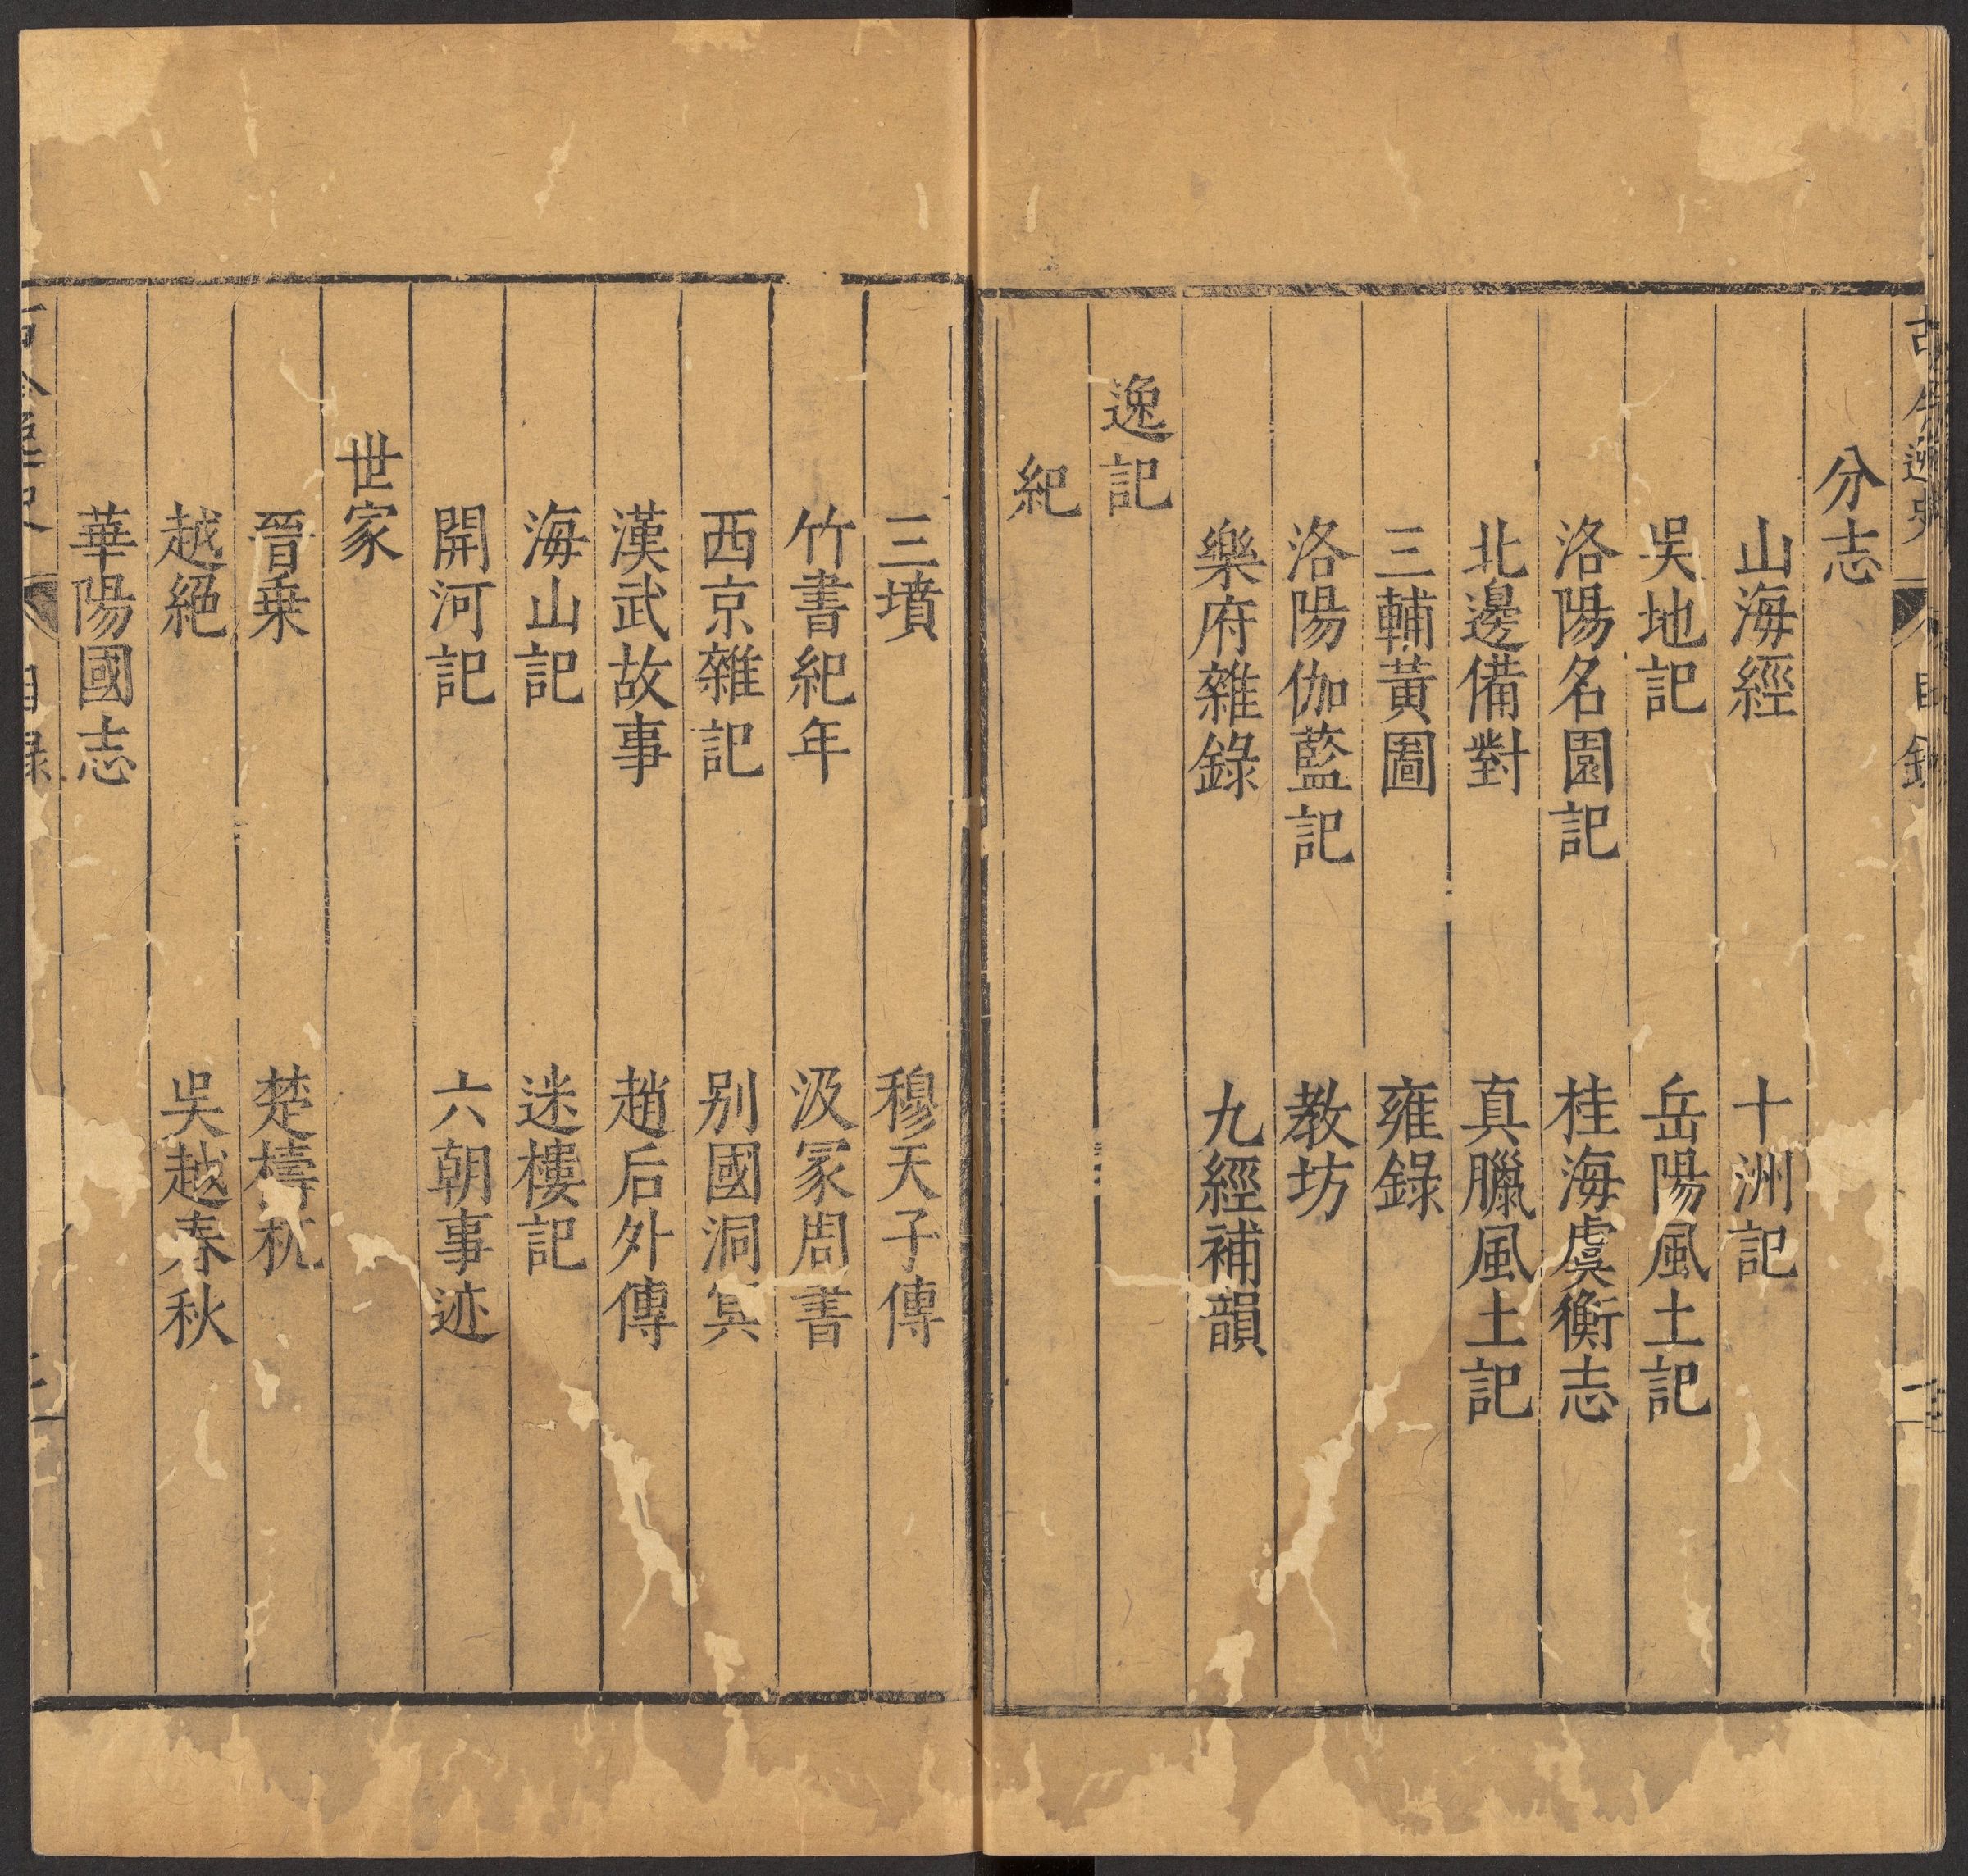 古今逸史 目錄
分志
山海經 十洲記
吳地記 岳陽風土記
洛陽名園記 桂海虞衡志
北邊備對 真臘風土記
三輔黃圖 雍錄
洛陽伽藍記 教坊記
樂府雜錄 九經補韻
逸記
紀
三墳 穆天子傳
竹書紀年 汲冢周書
西京雜記 别國洞冥
漢武故事 趙后外傳
海山記 迷樓記
開河記 六朝事迹
世家
晉乗 楚檮杌
越絕 吳越春秋
華陽國志